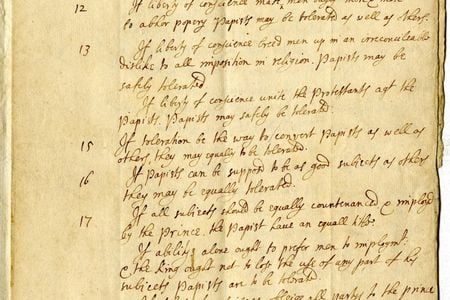 12 If liberty of conscience make men ought more & more
to abhor popery Papists may be tolerated as well as others.
13 If liberty of conscience breed men up in an irreconcileable
dislike to all imposition in religion. Papists may be
safely tolerated
If liberty of conscience unite the Protestants agt the
Papists. Papists may safely be tolerated.
15 If toleration be the way to convert Papists as well as
others, they may equally be tolerated.
16 If Papists can be supposd to be as good subjects as others
they may be equally tolerated.
17 If all subjects should be equally countenanced & imployd
by the Prince. the Papist have an equall title.
If abilitys alone ought to prefer men to imploymt.
& the King ought not to lose the use of any part of his
subjects Papists are to be tolerated
all partys to the prince